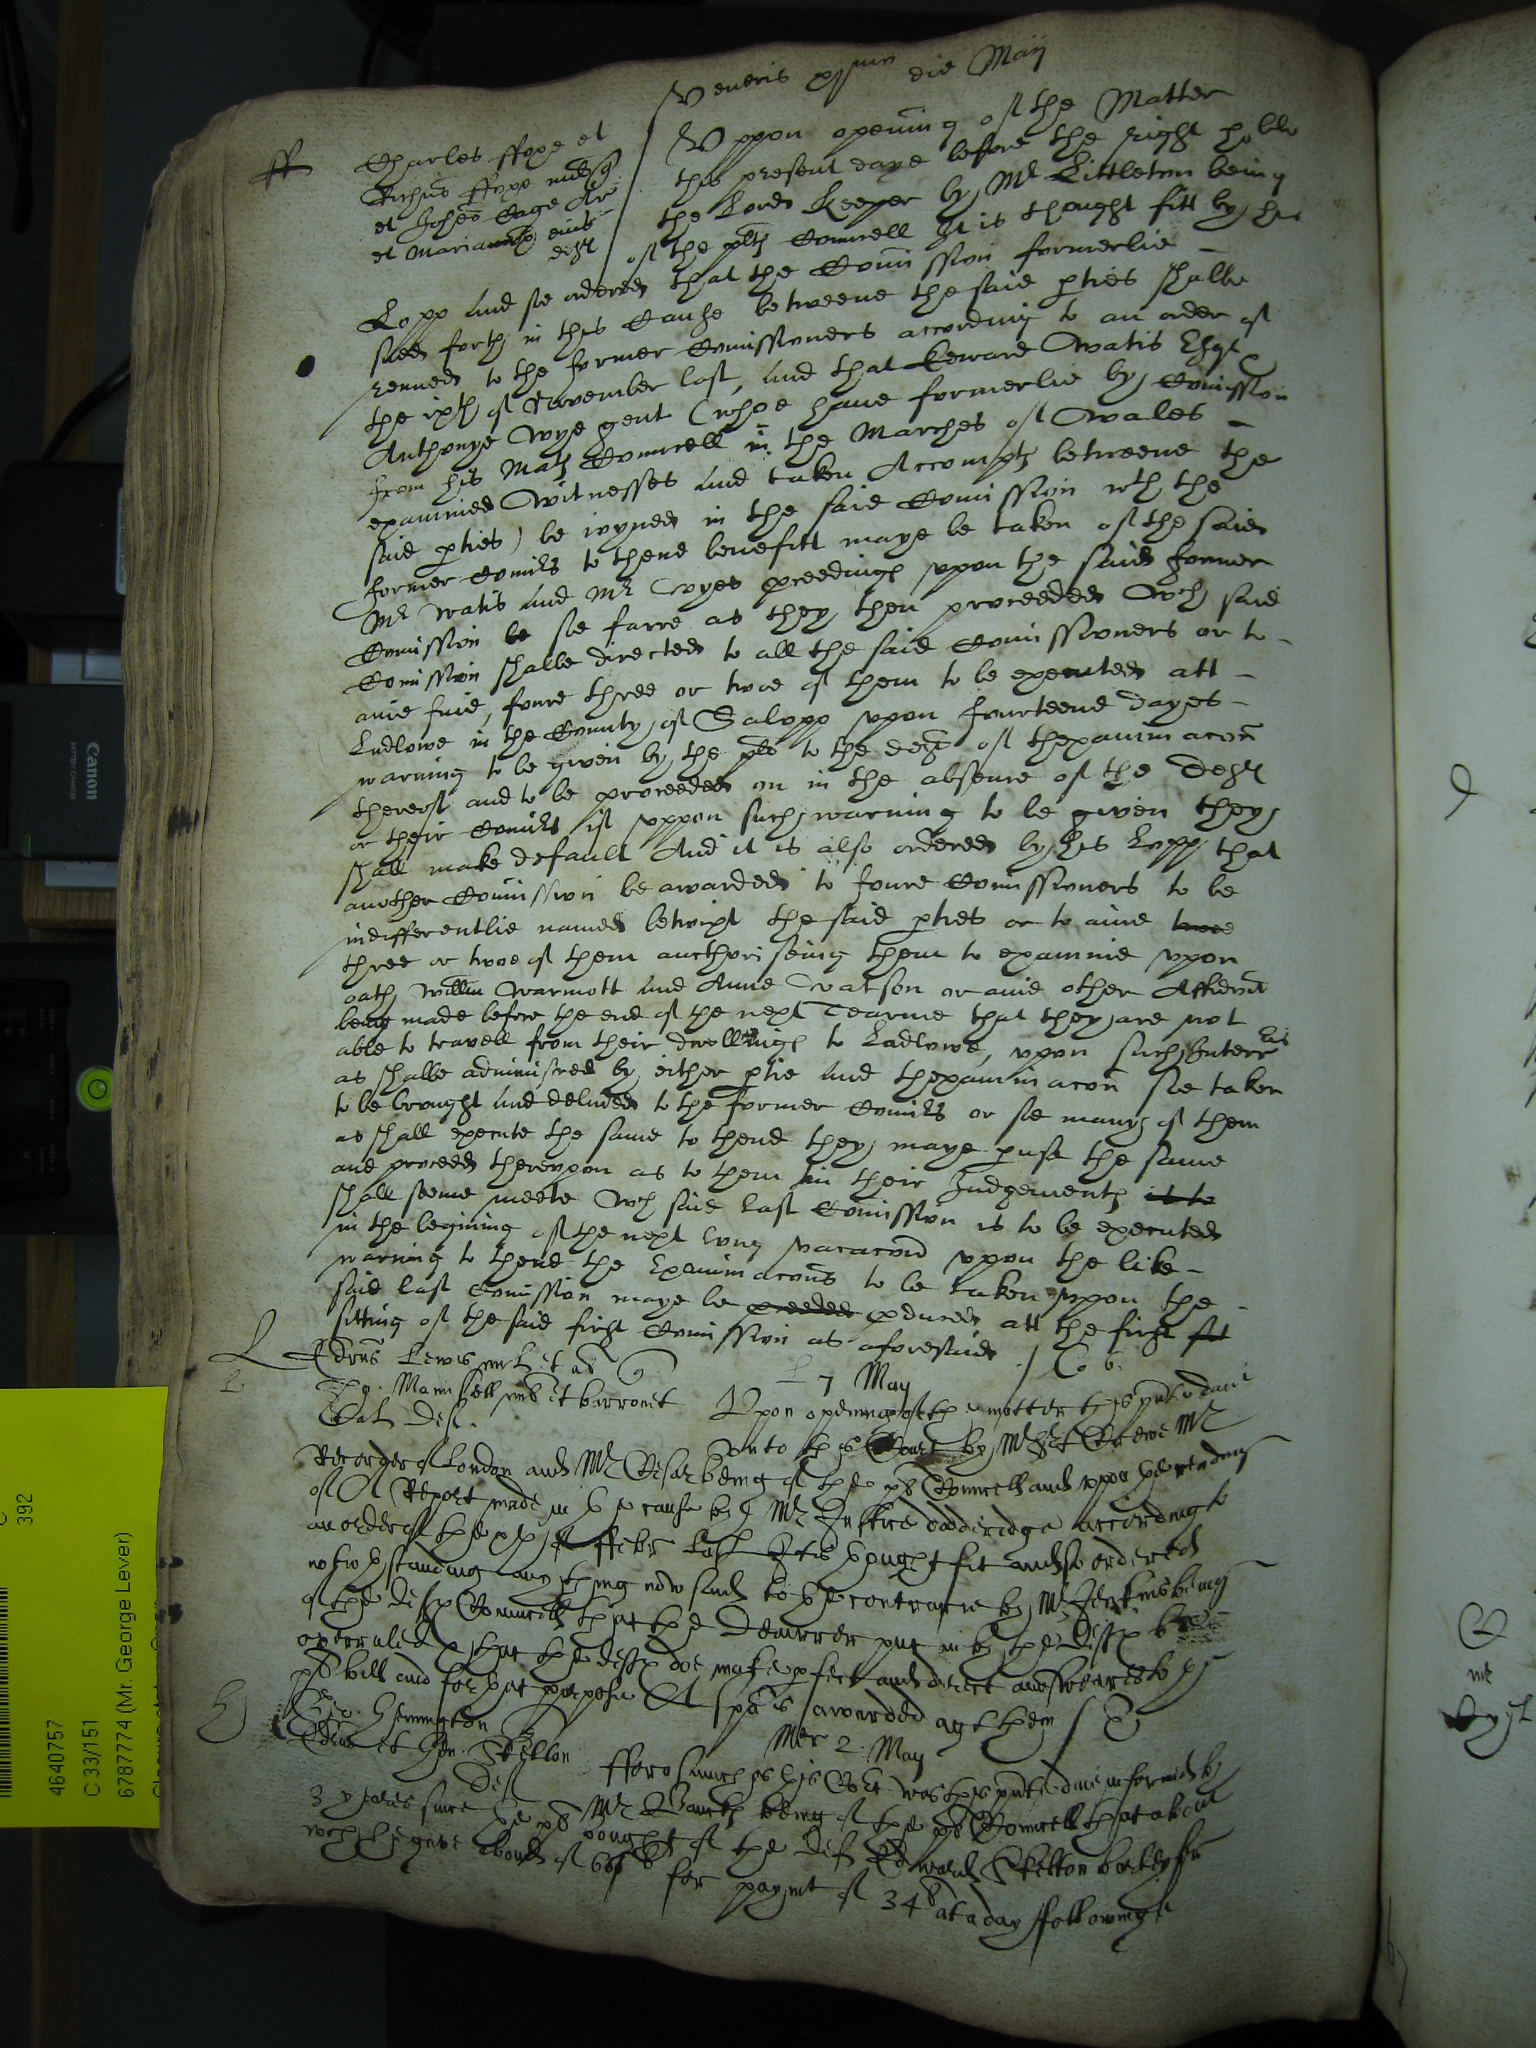 Veneris die Maij
ff Charles ffoxe et
Richus ffoxe
et Johes Gage Ar
et Mariam eius
deft
Uppon opening of the Matter
this present daye before the right hoble
the Lord Keeper by Mr Littleton being
of the plts Councell It is thought fitt by his
Lopp and soe ordered that the Comission formerlie
sued forth in this Cause betweene the said pties shalbe
renued to the former Comissioners according to an order of
the ixth of November last, And that Edward Watis Esqr
Anthonye Wye gent (whoe have formerlie by Comission
from his Mats Councell in the Marches of Wales
examined Witnesses and taken Accompts betweene the
said pties) be ioyned in the said Comission wth the
former Comrs to thend benefitt maye be taken of the said
Mr Watis and Mr Wyes pceedings upon the said former
Comission be soe farre as they then proceeded Wch said
Comission shalbe directed to all the said Comissioners or to
anie five, foure three or twoe of them to be executed att
Ludlowe in the County of Salopp upon fourteene dayes
warning to be given by the plts to the deft of thexaminacon
thereof and to be proceeded on in the absence of the Deft
or their Comrs if uppon such warning to be given they
shall make default And it is also ordered by his Lopp that
another Comission be awarded to foure Comissioners to be
indifferentlie named betwixt the said pties or to anie twoe
three or twoe of them aucthoriseing them to examine upon
oath Willm Warmott and Anne Watson or anie other Affidavit
being made before the end of the next Tearme that they are not
able to travell from their dwellings to Ludlowe, upon such Interr
as shalbe administred by either ptie And thexaminacon soe taken
to be brought and delivered to the former Comrs or soe many of them
as shall execute the same to thend they maye puse the same
and proceed thereupon as to them in their Judgements is to
shall seeme meete Wch said last Comission is to be executed
in the begining of the next long vacacon upon the like
warning to thend the Examinacons to be taken upon the
said last Comission maye be pceeded pduced att the first
sitting of the said first Comission as aforesaid
L Edrus Lewis mil et al
Tho. Mansell mil et barronet
Deft
7 May
Upon opening of the matter this pnte daie
unto this Court by Mr Srt Crewe Mr
Recorder of London and Mr being of the pls Councell and upon the reading
of A Report made in the cause by Mr Justice dodderidge according to
an order of the xxth of ffebr last It is thought fit and so ordered
notwthstanding any thing now said to the contrarie by Mr Jenkins being
of the defts Councell that the demurrer put in by the defts bee
overruled & that the defts doe make pfect and direct answeare to the
pls bill and for that purpose A spa is awarded agt them
H Hennington
Edrus et Skelton
Deft
Mer 2 May
fforasmuch as this Court was this pnte daie informed by
Mr being of the pls Councell that about
3 yeares since the pl bought of the deft Edward Skelton
wch he gave for paymt of 34l at a day following
Canon
BATTERY CHARGER
392
4640757
C 33/151
6787774 (Mr. George Lever)